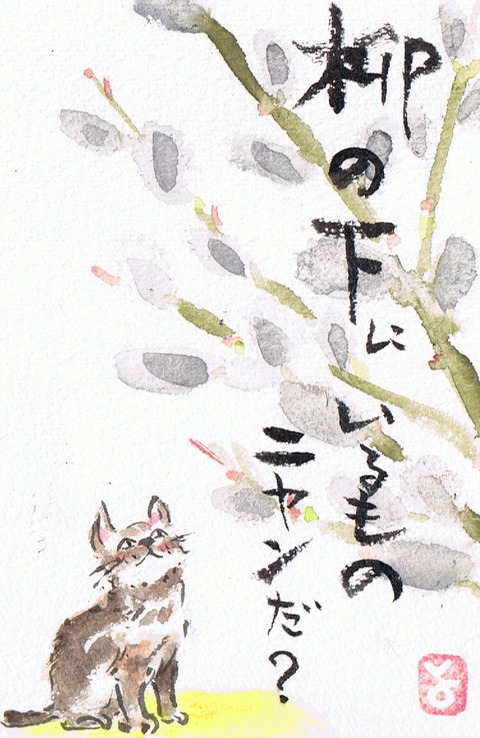 柳の下にいるもの
ニャンだ？